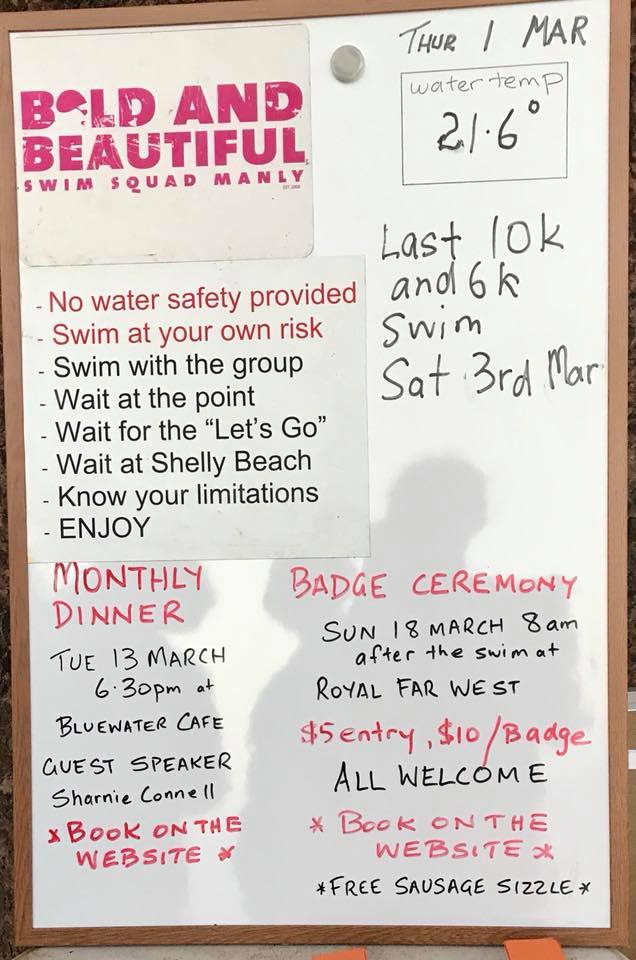 BOLD AND
BEAUTIFUL
SWIM SQUAD MANLY
THUR 1 MAR
water temp
21.6°
Last 10k
and 6k
Swim
Sat 3rd Mar
- No water safety provided
- Swim at your own risk
- Swim with the group
- Wait at the point
- Wait for the “Let’s Go”
- Wait at Shelly Beach
- Know your limitations
- ENJOY
MONTHLY
DINNER
TUE 13 MARCH
6.30pm at
BLUEWATER CAFE
GUEST SPEAKER
Sharnie Connell
* BOOK ON THE
WEBSITE *
BADGE CEREMONY
SUN 18 MARCH 8am
after the swim at
ROYAL FAR WEST
$5 entry, $10/Badge
ALL WELCOME
* BOOK ON THE
WEBSITE *
* FREE SAUSAGE SIZZLE *